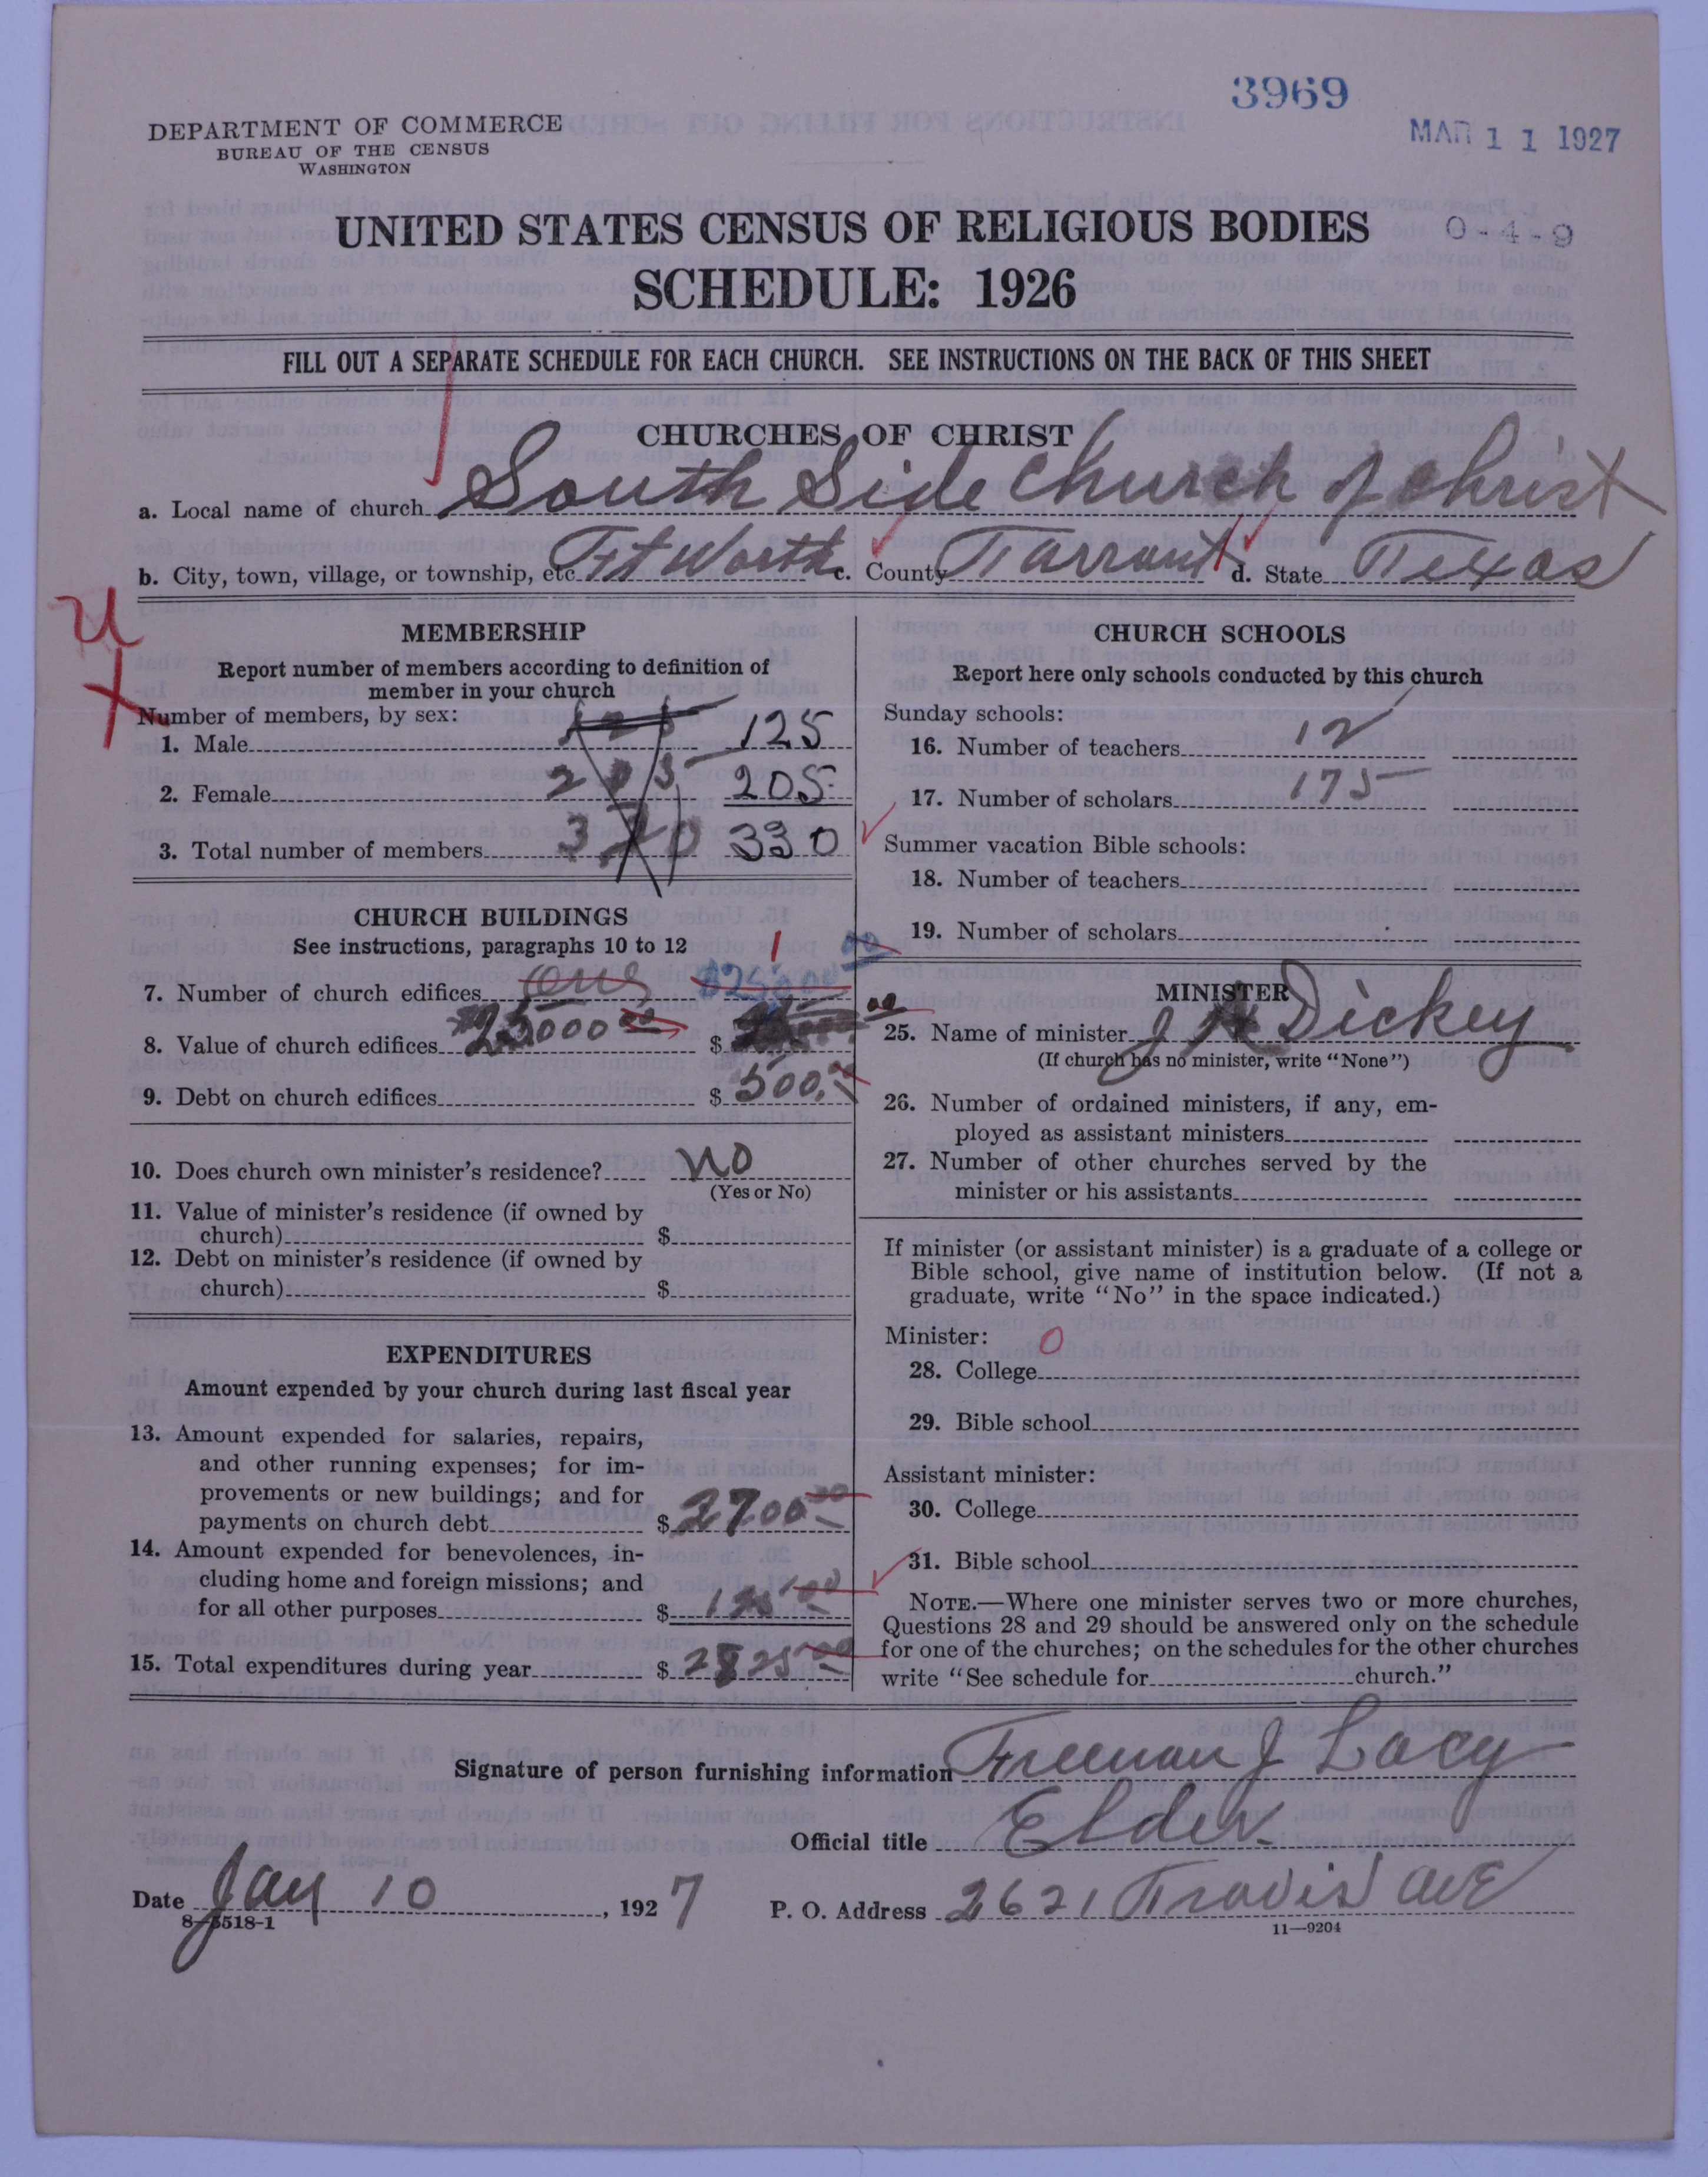 3969
MAR 11 1927
DEPARTMENT OF COMMERCE
BUREAU OF THE CENSUS
WASHINGTON
UNITED STATES CENSUS OF RELIGIOUS BODIES 0-4-9
SCHEDULE: 1926
FILL OUT A SEPARATE SCHEDULE FOR EACH CHURCH. SEE INSTRUCTIONS ON THE BACK OF THIS SHEET
CHURCHES OF CHRIST
a. Local name of church South Side Church of Christ
b. City, town, village, or township, etc. Ft Worth c. County Tarrant d. State Texas
U
X
MEMBERSHIP
Report number of members according to definition of
member in your church
Number of members, by sex:
1. Male 125 125
2. Female 205 205
3. Total number of members 330
CHURCH BUILDINGS
See instructions, paragraphs 10 to 12
1
7. Number of church edifices one $25000 00
8. Value of church edifices 25000 00 $
9. Debt on church edifices $ 500.00
10. Does church own minister's residence? no
(Yes or No)
11. Value of minister's residence (if owned by
church) $
12. Debt on minister's residence (if owned by
church) $
EXPENDITURES
Amount expended by your church during last fiscal year
13. Amount expended for salaries, repairs,
and other running expenses; for im-
provements or new buildings; and for
payments on church debt $ 2700 00
14. Amount expended for benevolences, in-
cluding home and foreign missions; and
for all other purposes $ 125 00
15. Total expenditures during year $ 2825 00
CHURCH SCHOOLS
Report here only schools conducted by this church
Sunday schools:
16. Number of teachers 12
17. Number of scholars 175
Summer vacation Bible schools:
18. Number of teachers
19. Number of scholars
MINISTER
25. Name of minister J A Dickey
(If church has no minister, write "None")
26. Number of ordained ministers, if any, em-
ployed as assistant ministers
27. Number of other churches served by the
minister or his assistants
If minister (or assistant minister) is a graduate of a college or
Bible school, give name of institution below. (If not a
graduate, write "No" in the space indicated.)
Minister: 0
28. College
29. Bible school
Assistant minister:
30. College
31. Bible school
NOTE.—Where one minister serves two or more churches,
Questions 28 and 29 should be answered only on the schedule
for one of the churches; on the schedules for the other churches
write "See schedule for church."
Signature of person furnishing information Freeman J Lacy
Official title Elder
Date Jan 10, 1927 P. O. Address 2621 Travis ave
8-5518-1 11-9204